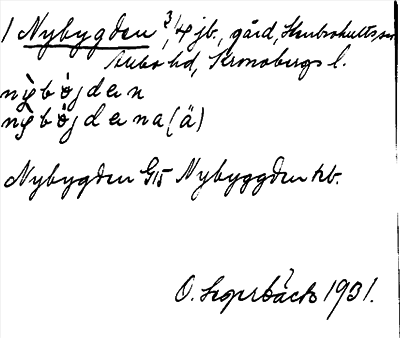 1 Nybygden 3/4 jb., gård, Stenbrohults sn
hd, Kronobergs l.
nỳbo̊jden
nỳbo̊jdena(ä)
Nybygden G15 Nybyggden kb.
O. 1931.